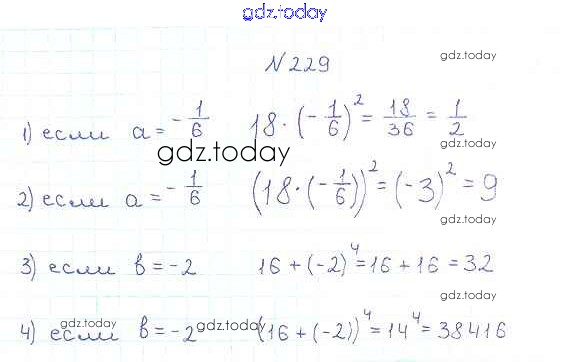 gdz.today
N 229
gdz.today
1) если a = -1/6 18·(-1/6)² = 18/36 = 1/2
gdz.today
gdz.today
2) если a = -1/6 (18·(-1/6))² = (-3)² = 9
gdz.today
3) если b = -2 16+(-2)⁴ = 16+16 = 32
gdz.today gdz.today gdz.today
4) если b = -2 (16+(-2))⁴ = 14⁴ = 38416